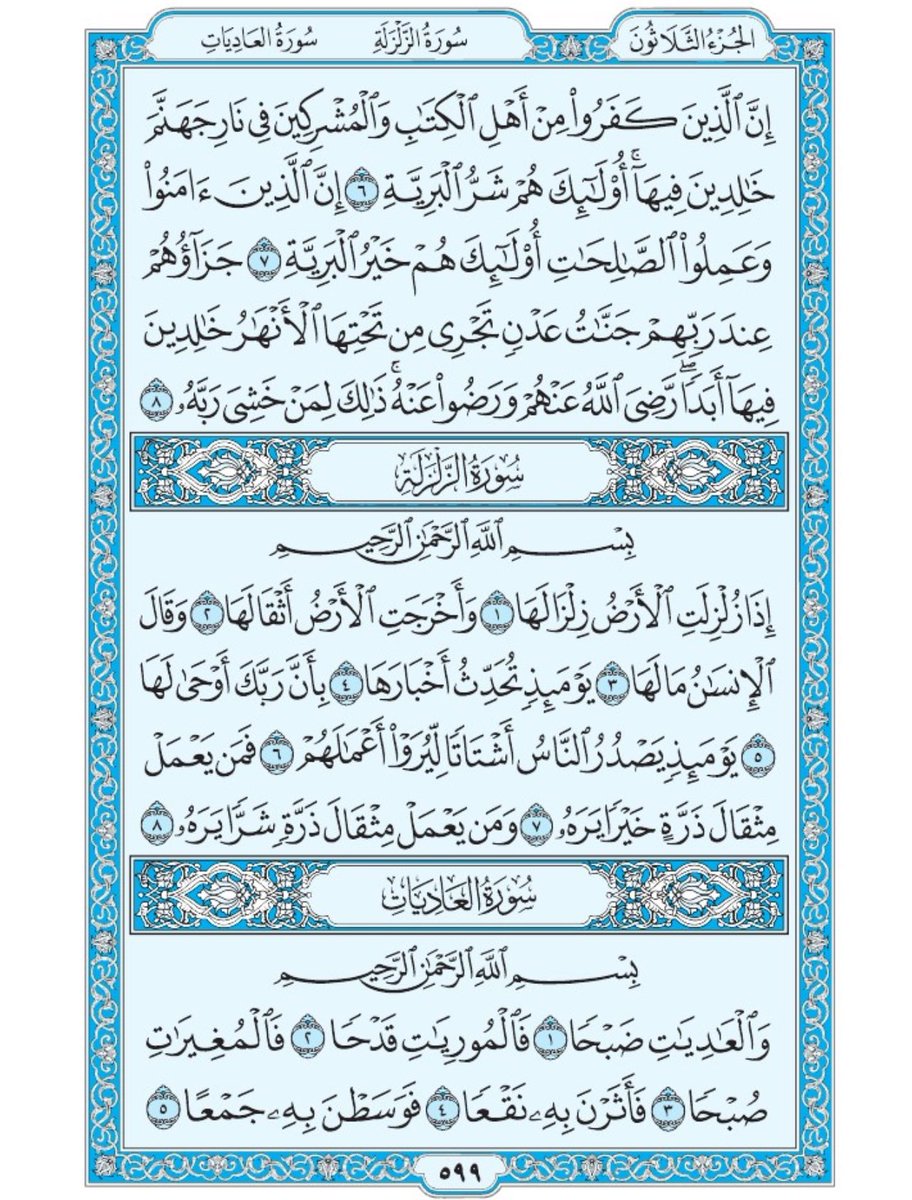 الجُزْءُ الثَّلَاثُونَ سُورَةُ الزَّلْزَلَةِ سُورَةُ العَادِيَاتِ
إِنَّ ٱلَّذِينَ كَفَرُوا۟ مِنْ أَهْلِ ٱلْكِتَـٰبِ وَٱلْمُشْرِكِينَ فِى نَارِ جَهَنَّمَ
خَـٰلِدِينَ فِيهَآ ۚ أُو۟لَـٰٓئِكَ هُمْ شَرُّ ٱلْبَرِيَّةِ ٦ إِنَّ ٱلَّذِينَ ءَامَنُوا۟
وَعَمِلُوا۟ ٱلصَّـٰلِحَـٰتِ أُو۟لَـٰٓئِكَ هُمْ خَيْرُ ٱلْبَرِيَّةِ ٧ جَزَآؤُهُمْ
عِندَ رَبِّهِمْ جَنَّـٰتُ عَدْنٍ تَجْرِى مِن تَحْتِهَا ٱلْأَنْهَـٰرُ خَـٰلِدِينَ
فِيهَآ أَبَدًا ۖ رَّضِىَ ٱللَّهُ عَنْهُمْ وَرَضُوا۟ عَنْهُ ۚ ذَٰلِكَ لِمَنْ خَشِىَ رَبَّهُۥ ٨
سُورَةُ الزَّلْزَلَةِ
بِسْمِ ٱللَّهِ ٱلرَّحْمَـٰنِ ٱلرَّحِيمِ
إِذَا زُلْزِلَتِ ٱلْأَرْضُ زِلْزَالَهَا ١ وَأَخْرَجَتِ ٱلْأَرْضُ أَثْقَالَهَا ٢ وَقَالَ
ٱلْإِنسَـٰنُ مَا لَهَا ٣ يَوْمَئِذٍ تُحَدِّثُ أَخْبَارَهَا ٤ بِأَنَّ رَبَّكَ أَوْحَىٰ لَهَا
٥ يَوْمَئِذٍ يَصْدُرُ ٱلنَّاسُ أَشْتَاتًا لِّيُرَوْا۟ أَعْمَـٰلَهُمْ ٦ فَمَن يَعْمَلْ
مِثْقَالَ ذَرَّةٍ خَيْرًا يَرَهُۥ ٧ وَمَن يَعْمَلْ مِثْقَالَ ذَرَّةٍ شَرًّا يَرَهُۥ ٨
سُورَةُ العَادِيَاتِ
بِسْمِ ٱللَّهِ ٱلرَّحْمَـٰنِ ٱلرَّحِيمِ
وَٱلْعَـٰدِيَـٰتِ ضَبْحًا ١ فَٱلْمُورِيَـٰتِ قَدْحًا ٢ فَٱلْمُغِيرَٰتِ
صُبْحًا ٣ فَأَثَرْنَ بِهِۦ نَقْعًا ٤ فَوَسَطْنَ بِهِۦ جَمْعًا ٥
٥٩٩